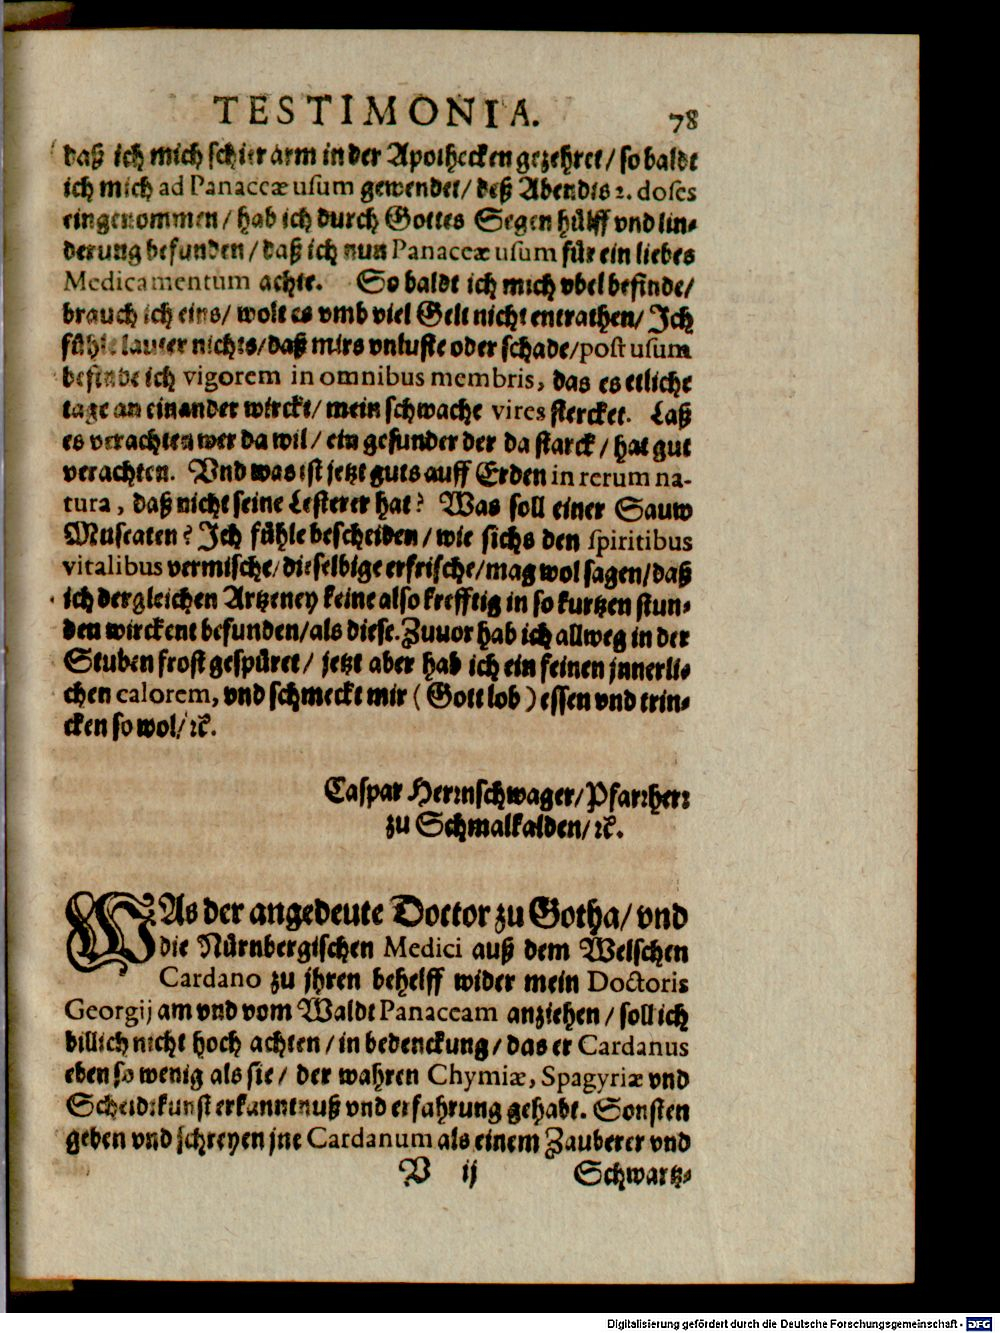 TESTIMONIA. 78
daß ich mich schier arm in der Apothecken gezehret / so baldt
ich mich ad Panaceæ usum gewendet / deß Abendts 2. doses
eingenommen / hab ich durch Gottes Segen hülff vnd lin⸗
derung befunden / daß ich nun Panaceæ usum für ein liebes
Medicamentum achte. So baldt ich mich vbel befinde /
brauch ich eins / wolt es vmb viel Gelt nicht entrathen / Ich
fühle lauter nichts / daß mirs vnluste oder schade / post usum
befinde ich vigorem in omnibus membris, das es etliche
tage an einander wirckt / mein schwache vires stercket. Laß
es verachten wer da wil / ein gesunder der da starck / hat gut
verachten. Vnd was ist jetzt guts auff Erden in rerum na-
tura, daß nicht seine Lesterer hat? Was soll einer Sauw
Muscaten? Ich fühle bescheiden / wie sichs den spiritibus
vitalibus vermische / dieselbige erfrische / mag wol sagen / daß
ich dergleichen Artzeney keine also krefftig in so kurtzen stun⸗
den wirckent befunden / als diese. Zuuor hab ich allweg in der
Stuben frost gespüret / jetzt aber hab ich ein feinen jnnerli⸗
chen calorem, vnd schmeckt mir (Gott lob) essen vnd trin⸗
cken so wol / ꝛc.
Caspar Herrnschwager / Pfarrherr
zu Schmalkalden / ꝛc.
WAs der angedeute Doctor zu Gotha / vnd
die Nürnbergischen Medici auß dem Welschen
Cardano zu jhren behelff wider mein Doctoris
Georgij am vnd vom Waldt Panaceam anziehen / soll ich
billich nicht hoch achten / in bedenckung / das er Cardanus
eben so wenig als sie / der wahren Chymiæ, Spagyriæ vnd
Scheidekunst erkanntnuß vnd erfahrung gehabt. Sonsten
geben vnd schreyen jne Cardanum als einem Zauberer vnd
V ij Schwartz⸗
Digitalisierung gefördert durch die Deutsche Forschungsgemeinschaft - DFG